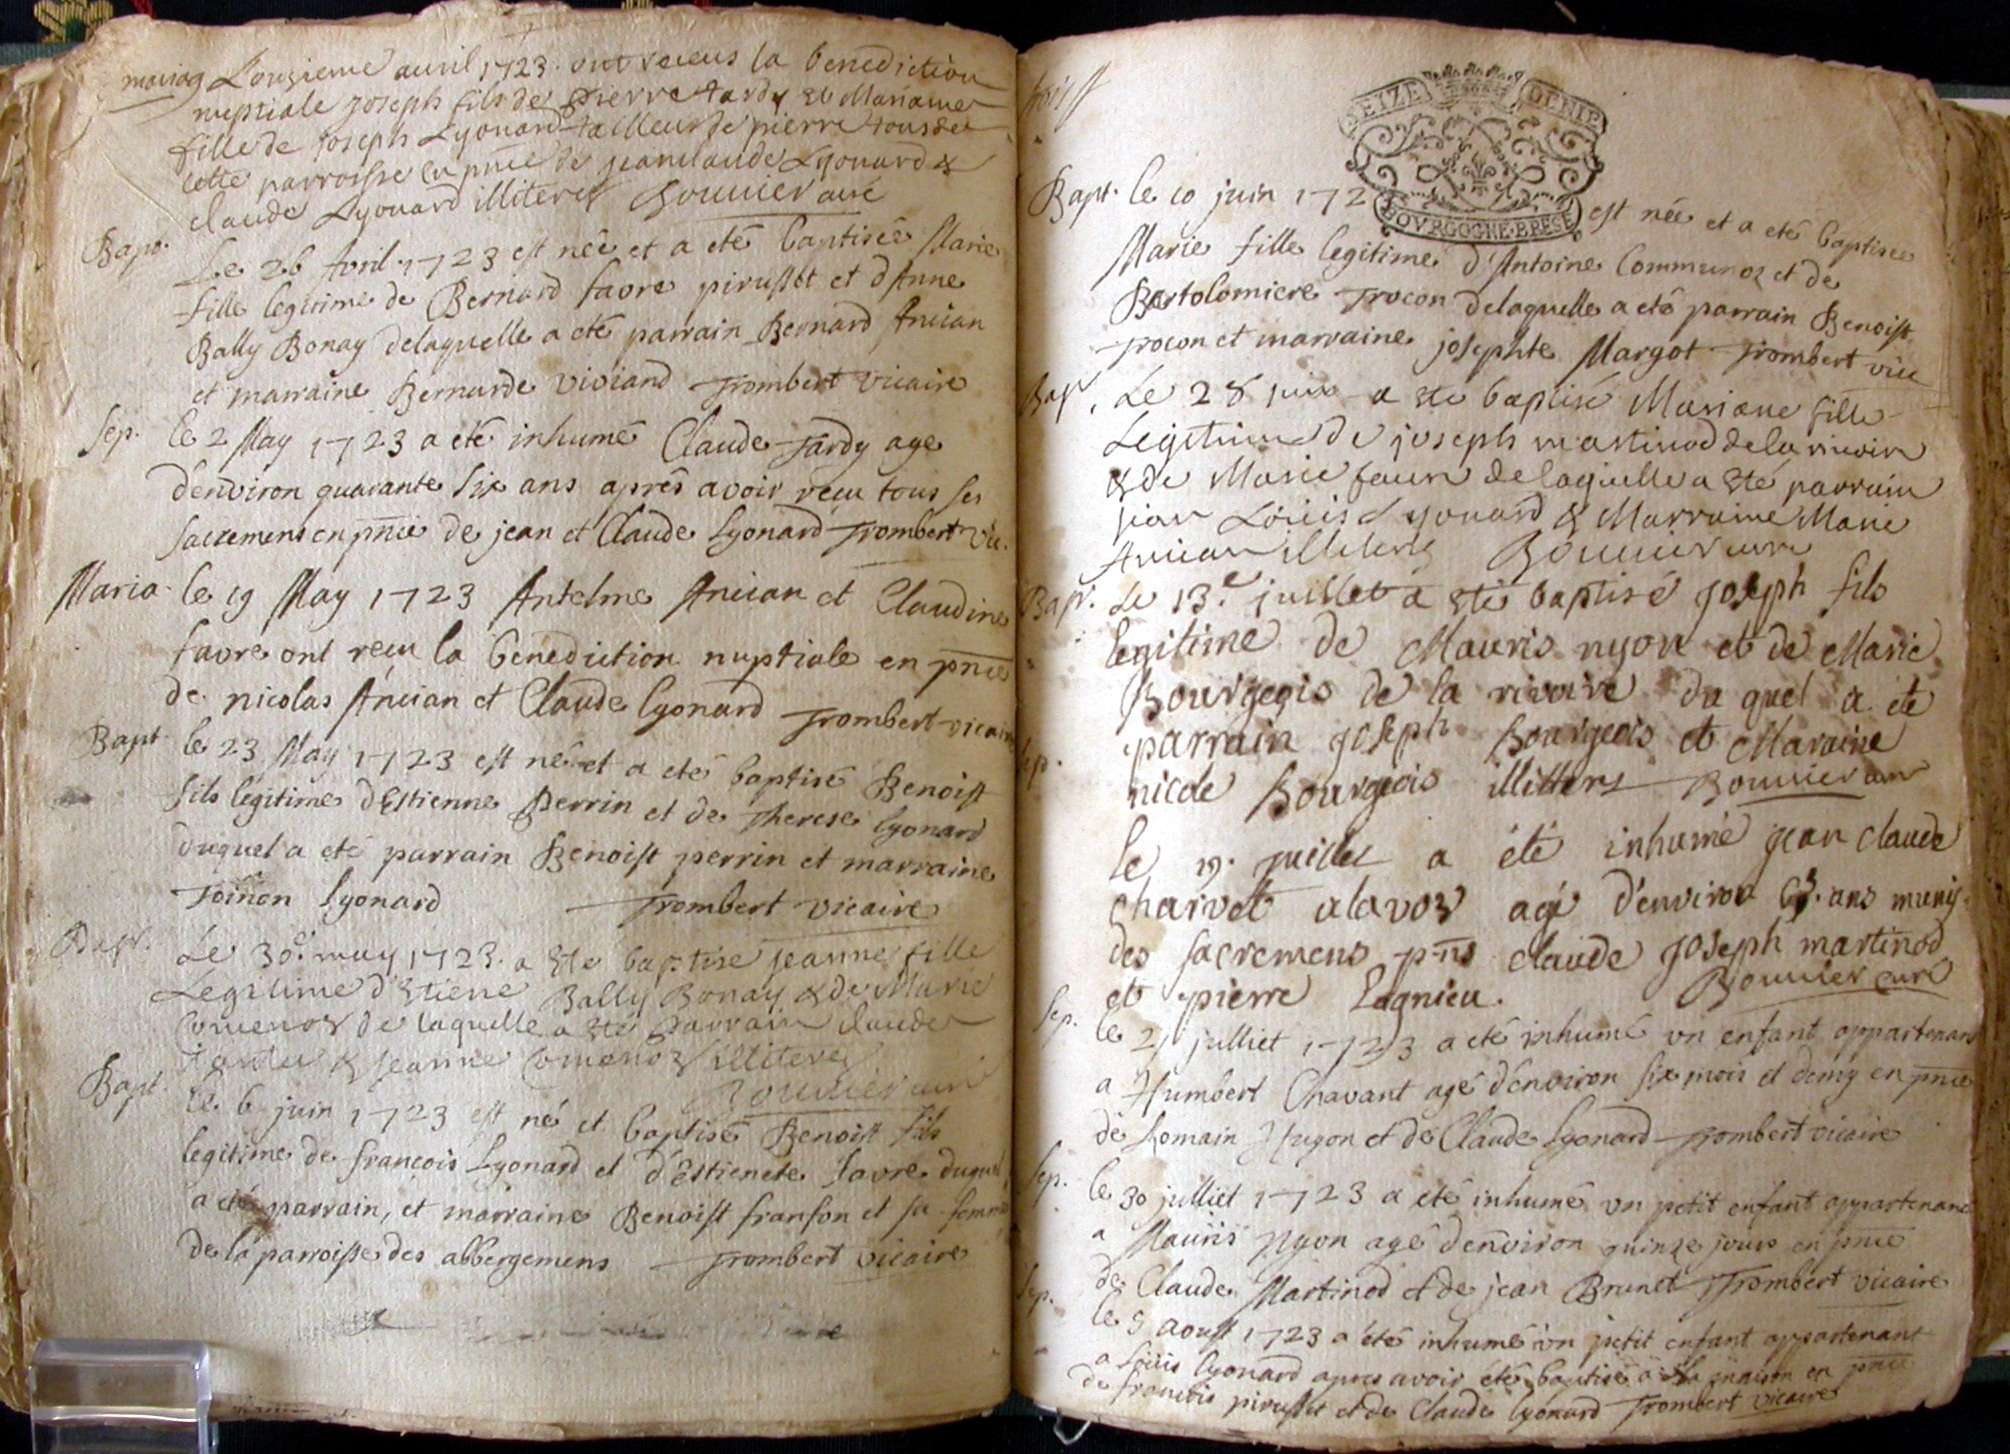 mariag L'onzieme auril 1723 ont receus la benediction
nuptiale joseph fils de pierre tardy et Mariane
fille de joseph Lyonard tailleur de pierre tous de
cette parroisse en pnce de jeanclaude Lyonard &
claude Lyonard illiteres Bouuier curé
Bapt. Le 26 Avril 1723 est née et a eté baptisée Marie
fille legitime de Bernard favre pirusset et d'Anne
Bally Bonay delaquelle a eté parrain Bernard Ancian
et marraine Bernarde viviand Trombert vicaire
Sep. le 2 May 1723 a eté inhumé Claude Tardy age
d'environ quarante six ans aprés avoir recu tous ses
sacremens en pnce de jean et Claude Lyonard Trombert vic.
Maria le 19 May 1723 Antelme Ancian et Claudine
favre ont recu la benediction nuptiale en pnce
de nicolas Ancian et Claude lyonard Trombert vicaire
Bapt le 23 May 1723 est né et a eté baptisé Benoist
fils légitime d'Estienne perrin et de Therese lyonard
duquel a eté parrain Benoist perrin et marraine
Toinon lyonard Trombert vicaire
Bapt. Le 30e may 1723 a esté baptisé jeanne fille
Legitime d'Etiene Bally Bonay & de Marie
Comenoz de laquelle a esté parrain claude
& jeanne Comenoz illiteres
Bouuier curé
Bapt. le 6 juin 1723 est né et baptisé Benoist fils
legitime de francois Lyonard et d'Estienete favre duquel
a eté parrain, et marraine Benoist franson et sa femme
de la parroisse des abbergemens Trombert vicaire
SEIZE DENIE
BOVRGOGNE·BRESE
Bapt. le 10 juin 172 est née et a eté baptisée
Marie fille legitime d'Antoine Communoz et de
Bartolomiere Trocon delaquelle a eté parrain Benoist
Trocon et marraine josephte Margot Trombert vice
Bap. Le 28 juin a esté baptisé Mariane fille
Legitime de joseph martinod de la riuoire
& de Marie faure de laquelle a esté parrain
jean Louis Lyonard & Marraine Marie
Ancian illiteres Bouuier curé
Bapt. Le 13.e juillet a esté baptisé joseph fils
legitime de Mauris nyon et de Marie
Bourgeois de la rivoire du quel a ete
parrain joseph bourgeois et Maraine
nicole bourgeois illitteres Bouuier curé
Sep. le 19. juillet a été inhumé jean claude
charvet alavoz agé d'environ ans munis
des sacremens pns claude joseph martinod
et pierre Lagnieu. Bouuier curé
Sep. le 21 julliet 1723 a eté inhumé un enfant appartenant
a Humbert Chavant agé d'environ six mois et demy en pnce
de Romain Hugon et de Claude lyonard Trombert vicaire
Sep. le 30 julliet 1723 a eté inhumé un petit enfant appartenant
a Mauris Nyon agé d'environ quinze jours en pnce
de Claude Martinod et de jean Brunet Trombert vicaire
Sep. le 5 aoust 1723 a été inhumé un petit enfant appartenant
a Loüis lyonard apres avoir été baptisé a la maison en pnce
de francois pirusset et de Claude lyonard Trombert vicaire